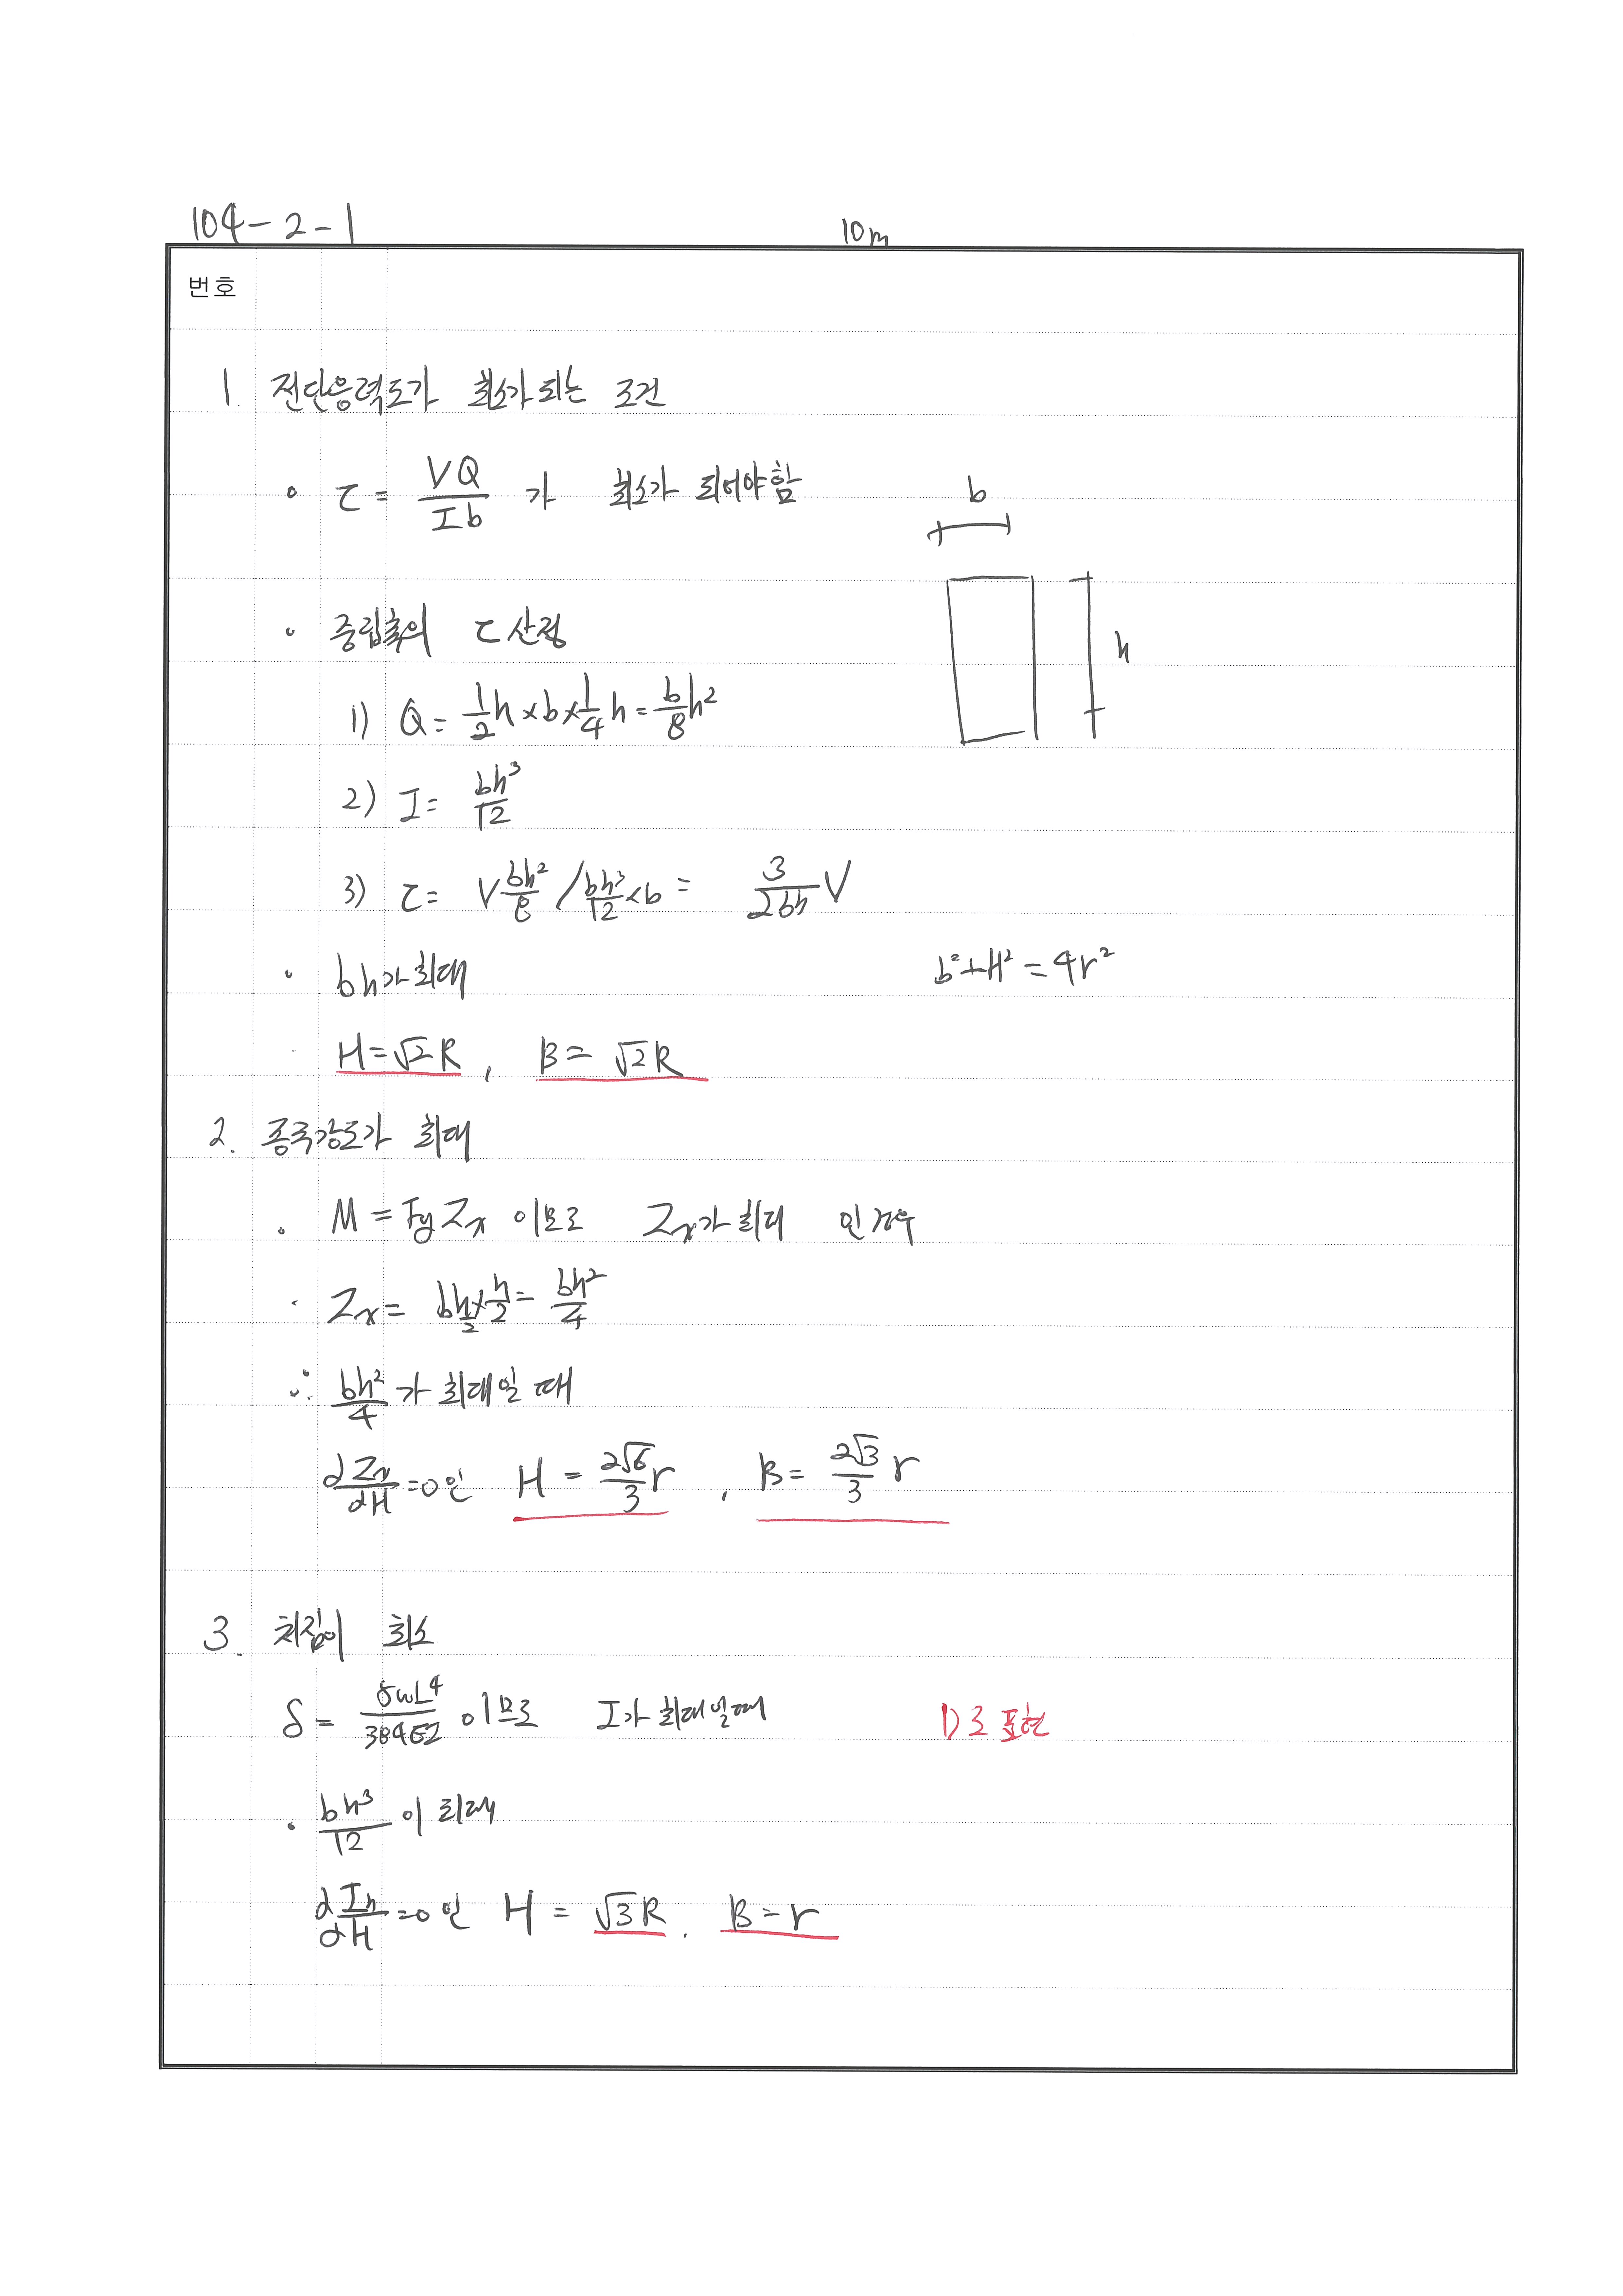 104-2-1 10m
번호
1. 전단응력도가 최소가 되는 조건
∘ τ = VQ/Ib 가 최소가 되어야함
b
h
∘ 중립축의 τ 산정
1) Q = 1/2 h × b × 1/4 h = b/8 h²
2) I = bh³/12
3) τ = V bh²/8 / bh³/12 × b = 3/2bh V
∘ bh가 최대 b²+H² = 4r²
· H = √2 R , B = √2 R
2. 종국강도가 최대
· M = Fy Zx 이므로 Zx가 최대 인 경우
· Zx = bh/2 × h/2 = bh²/4
∴ bh²/4 가 최대일 때
dZx/dH = 0인 H = 2√6/3 r , B = 2√3/3 r
3. 처짐이 최소
δ = 5wL⁴/384EI 이므로 I가 최대일때 D로 표현
· bh³/12 이 최대
dIx/dH = 0인 H = √3 R . B = r